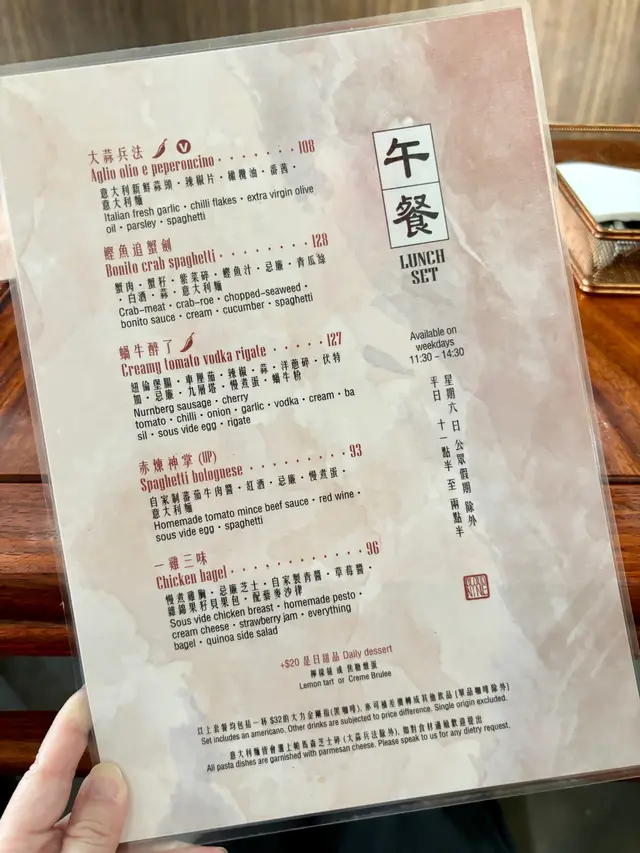 大蒜兵法 V
Aglio olio e peperoncino . . . . . . . 108
意大利新鮮蒜頭·辣椒片·橄欖油·番茜·
意大利麵
Italian fresh garlic · chilli flakes · extra virgin olive
oil · parsley · spaghetti
鰹魚追蟹劍
Bonito crab spaghetti . . . . . . . 128
蟹肉·蟹籽·紫菜碎·鰹魚汁·忌廉·青瓜絲
·白酒·蒜·意大利麵
Crab-meat · crab-roe · chopped-seaweed ·
bonito sauce · cream · cucumber · spaghetti
蝸牛醉了
Creamy tomato vodka rigate . . . . 127
紐倫堡腸·車厘茄·辣椒·蒜·洋蔥碎·伏特
加·忌廉·九層塔·慢煮蛋·蝸牛粉
Nurnberg sausage · cherry
tomato · chilli · onion · garlic · vodka · cream · ba
sil · sous vide egg · rigate
赤煉神掌 (UP)
Spaghetti bolognese . . . . . . . . . 93
自家制蕃茄牛肉醬·紅酒·忌廉·慢煮蛋·
意大利麵
Homemade tomato mince beef sauce · red wine ·
sous vide egg · spaghetti
一雞三味
Chicken bagel . . . . . . . . . . . . 96
慢煮雞胸·忌廉芝士·自家製青醬·草莓醬·
果籽貝果包·配藜麥沙律
Sous vide chicken breast · homemade pesto ·
cream cheese · strawberry jam · everything
bagel · quinoa side salad
+$20 是日甜品 Daily dessert
檸檬撻 或 焦糖燉蛋
Lemon tart or Creme Brulee
以上套餐均包括一杯 $32的大力金剛指(黑咖啡), 亦可補差價轉成其他飲品 [單品咖啡除外]
Set includes an americano. Other drinks are subjected to price difference. Single origin excluded.
意大利麵皆會灑上帕馬森芝士碎 (大蒜兵法除外), 如對食材過敏歡迎提出
All pasta dishes are garnished with parmesan cheese. Please speak to us for any dietry request.
午餐
LUNCH
SET
Available on
weekdays
11:30 - 14:30
星期六日 公眾假期 除外
平日 十一點半 至 兩點半